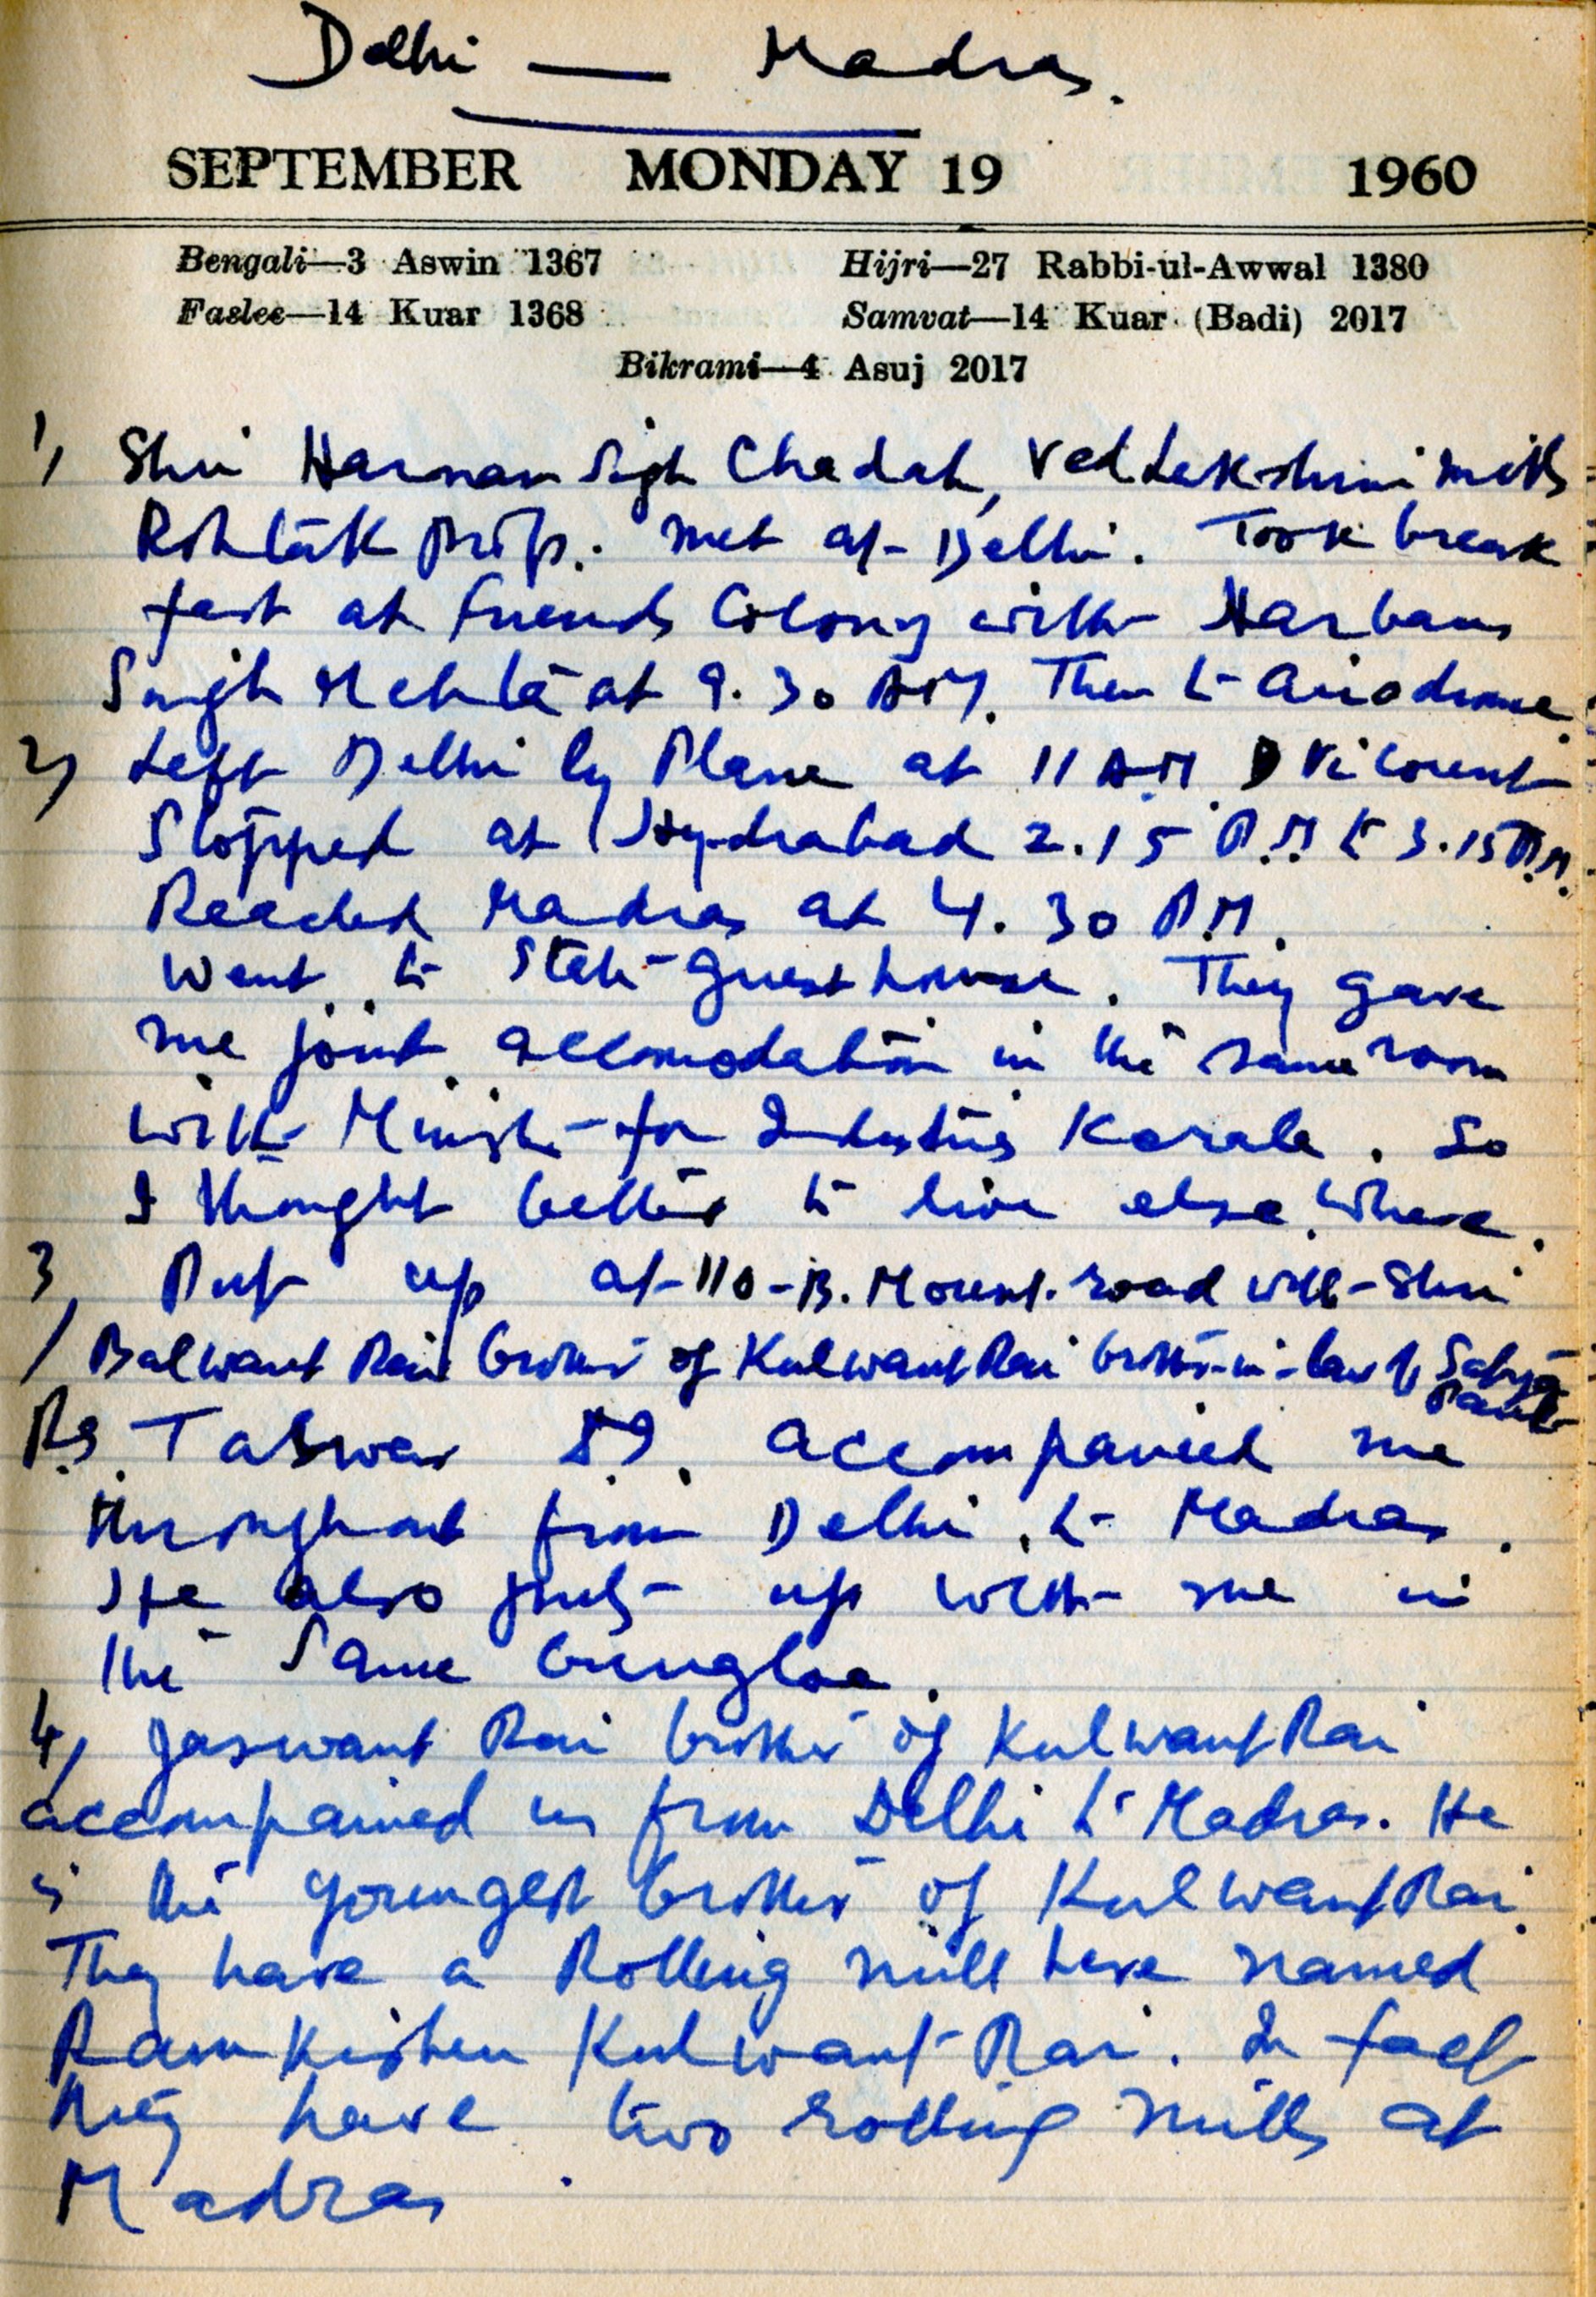 Delhi — Madras.
SEPTEMBER MONDAY 19 1960
Bengali—3 Aswin 1367 Hijri—27 Rabbi-ul-Awwal 1380
Faslee—14 Kuar 1368 Samvat—14 Kuar (Badi) 2017
Bikrami—4 Asuj 2017
1, Shri Harnam Sigh Chadah, Ved Lakshmi mills
Rohtak prop. met at Delhi. Took break
fast at friends Colony with Harbans
Singh Mehta at 9.30 AM. Then to
2, Left Delhi by Plane at 11 AM
Stopped at Hydrabad 2.15 P.M to 3.15 P.M.
Reached Madras at 4.30 P.M.
Went to State guest house. They gave
me joint accomodation in the same room
with Minister for Industries Kerala. So
I thought better to live else where.
3, Put up at 110-B. Mount. road with Shri
Balwant Rai brother of Kulwant Rai brother-in-law of Satya
Paul
Talwar accompanied me
throughout from Delhi to Madras.
He also put up with me in
the same
4, Jaswant Rai brother of Kulwant Rai
accompained us from Delhi to Madras. He
is the youngest brother of Kulwant Rai.
They have a Rolling mill here named
Ram Kishen Kulwant Rai. In fact
they have two rolling mills at
Madras.